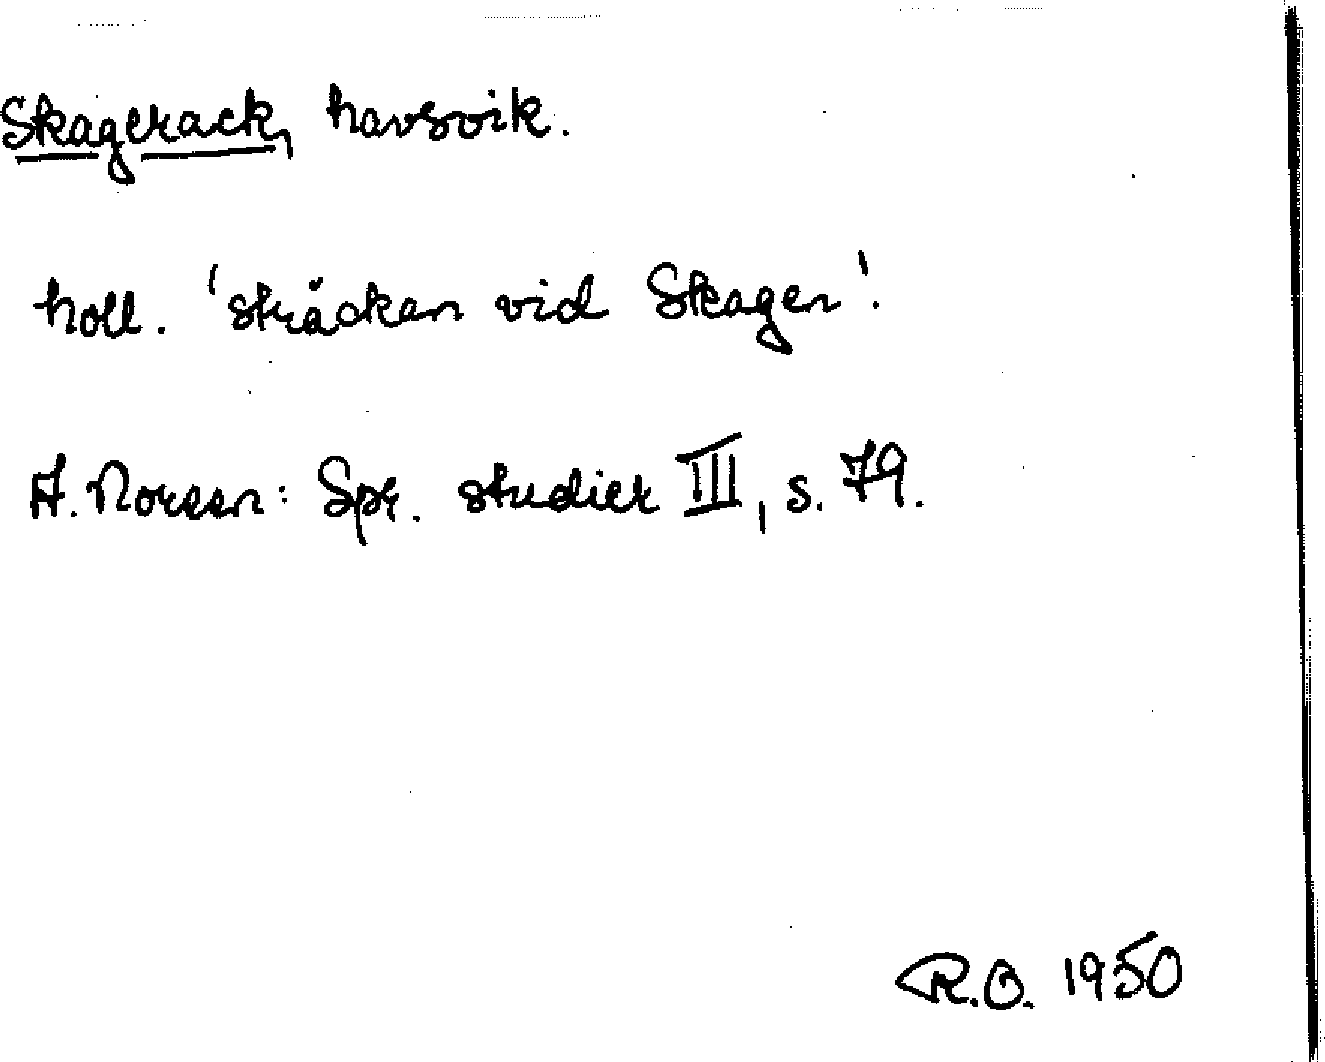 Skagerack, havsvik.
holl. 'sträckan vid Skagen'.
A. Noreen: Spr. studier III, s. 79.
R.O. 1950